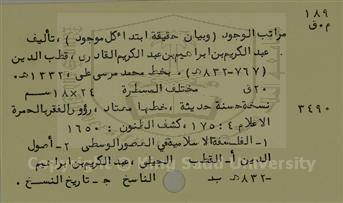 ١٨٩
م٠ق
مراتب الوجود (وبيان حقيقة ابتداء كل موجود)، تأليف
عبد الكريم بن ابراهيم بن عبد الكريم القادري، قطب الدين
(٧٦٧-٨٣٢هـ). بخط محمد مرسي علي، ١٣٣٢هـ.
٢٠ق مختلف المسطرة ٢٤×١٨سم
٣٤٩٠ نسخة حسنة حديثة، خطها معتاد، رؤوس الفقر بالحمرة
الاعلام ٤: ١٧٥، كشف الظنون: ١٦٥٠
١- الفلسفة الاسلامية في العصور الوسطى ٢- أصول
الدين أ- القطب الجيلي، عبد الكريم بن ابراهيم
-٨٣٢هـ ب- الناسخ ج- تاريخ النسخ.
King Saud University